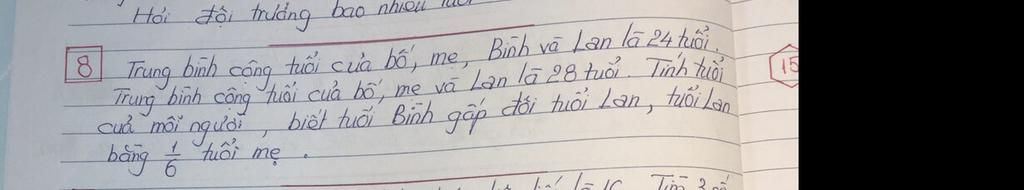 Hỏi đội trưởng bao nhiêu
8 Trung bình cộng tuổi của bố, mẹ, Bình và Lan là 24 tuổi.
Trung bình cộng tuổi của bố, mẹ và Lan là 28 tuổi. Tính tuổi
của mỗi người, biết tuổi Bình gấp đôi tuổi Lan, tuổi Lan
bằng 1/6 tuổi mẹ.
15